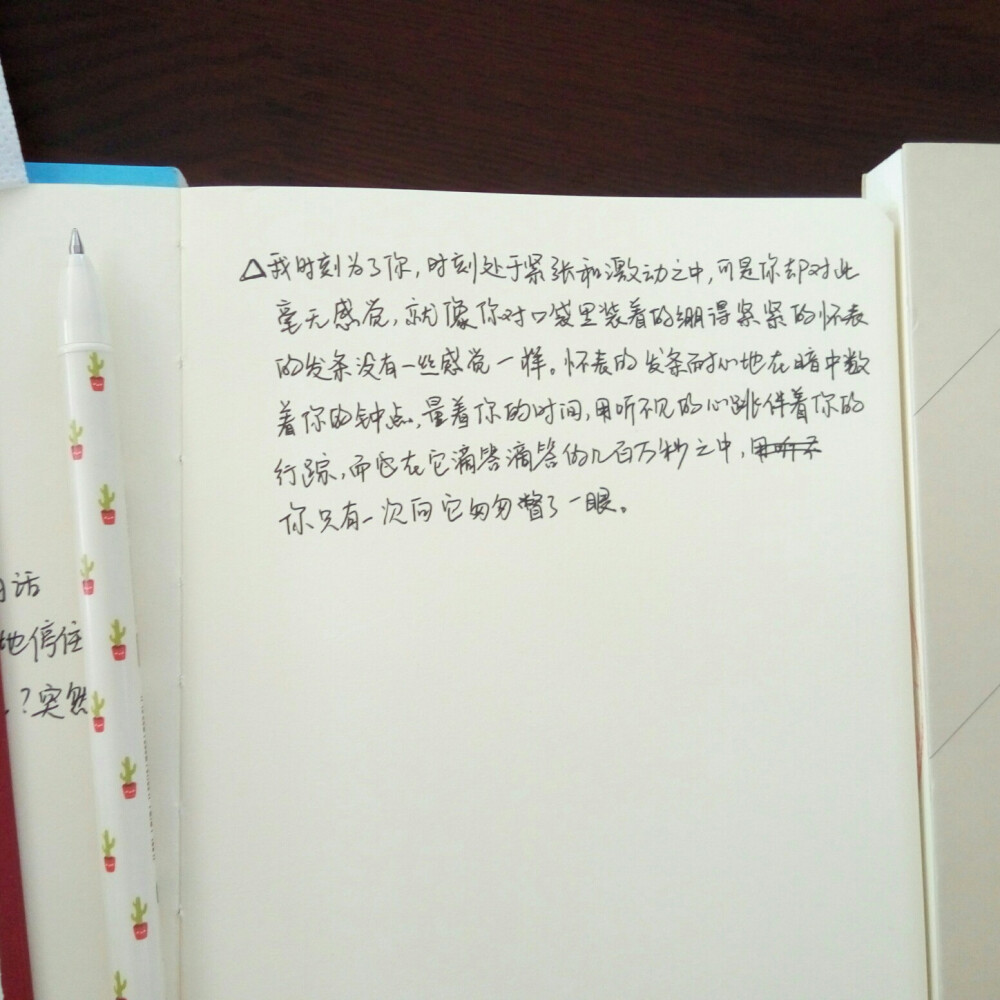 △我时刻为了你,时刻处于紧张和激动之中,可是你却对此
毫无感觉,就像你对口袋里装着的绷得紧紧的怀表
的发条没有一丝感觉一样。怀表的发条耐心地在暗中数
着你的钟点,量着你的时间,用听不见的心跳伴着你的
行踪,而你在它滴答滴答的几百万秒之中,用听不
你只有一次向它匆匆瞥了一眼。
话
地停住
?突然